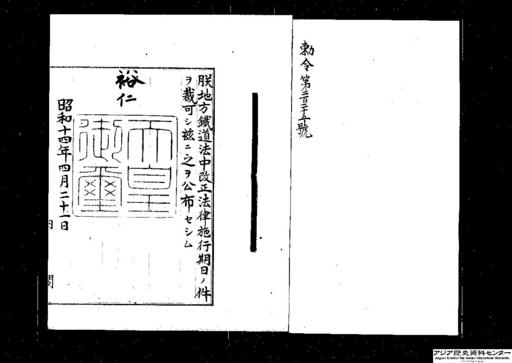 勅令第二百二十五號
朕地方鐵道法中改正法律施行期日ノ件
ヲ裁可シ茲ニ之ヲ公布セシム
裕仁
天皇御璽
昭和十四年四月二十一日
内閣
アジア歴史資料センター
Japan Center for Asian Historical Records